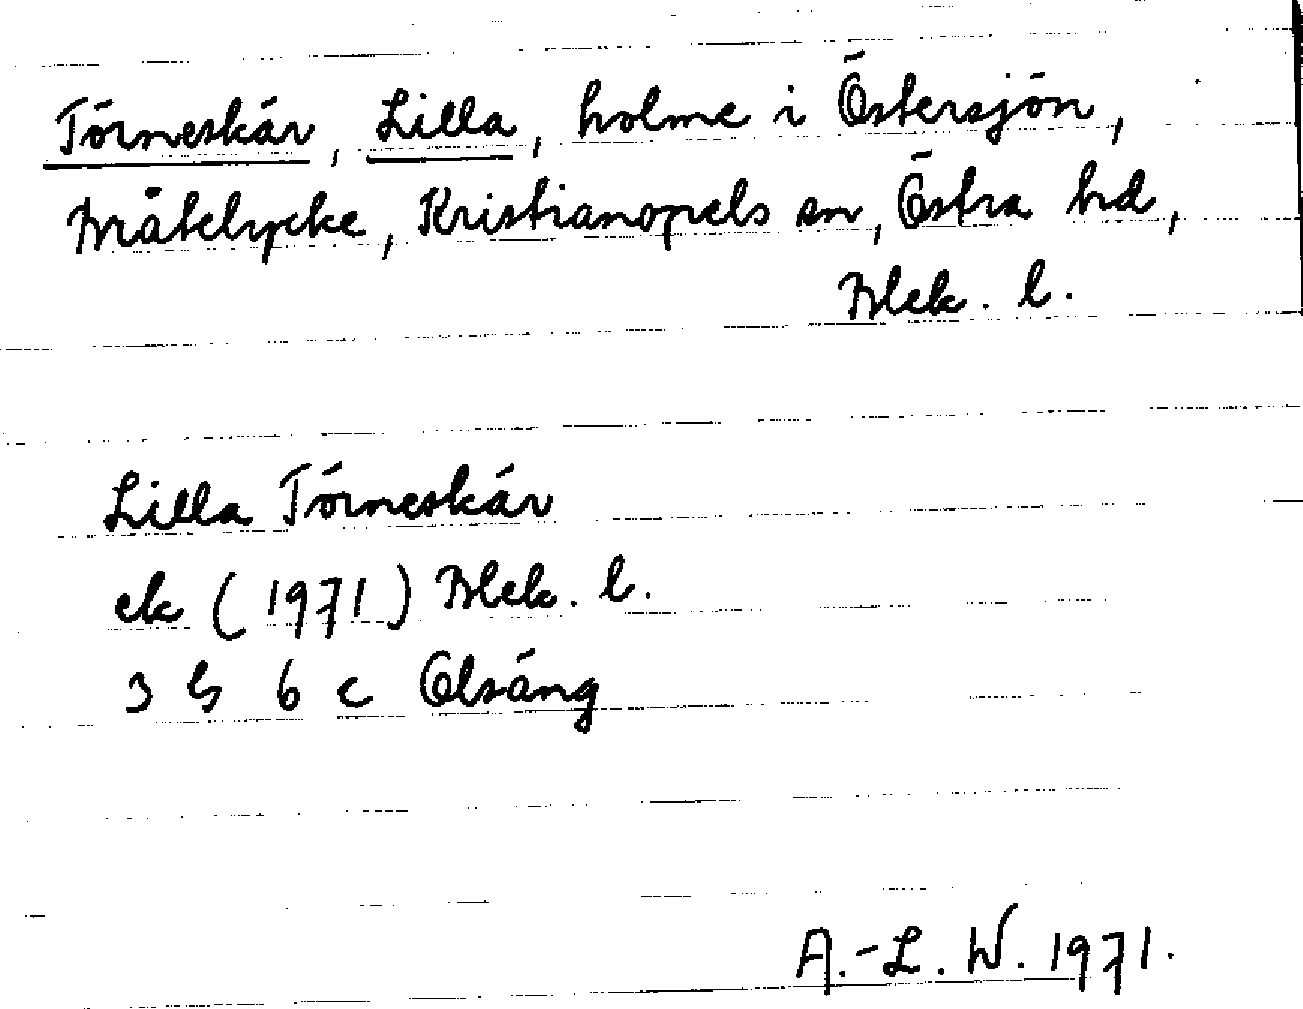 Törneskär, Lilla, holme i Östersjön,
Bråtelycke, Kristianopels sn, Östra hd,
Blek. l.
Lilla Törneskär
ek (1971) Blek. l.
3 G 6 c Olsäng
A.-L. W. 1971.